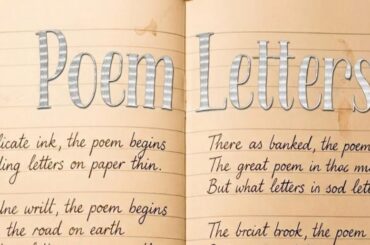 Poem Letters
icate ink, the poem begins
ding letters on paper thin.
lne wrilt, the poem begins
the road on earth
There as banked, the poem
The great poem in thac mu
But what letters in sod lett
The brcint brook, the poem